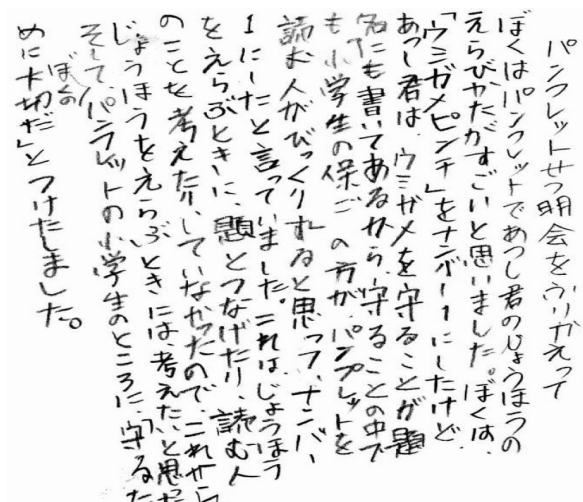 パンフレットせつ明会をふりかえって
ぼくはパンフレットであつし君のじょうほうの
えらびかたがすごいと思いました。ぼくは、
「ウミガメピンチ」をナンバー1にしたけど、
あつし君は、ウミガメを守ることが題
名にも書いてあるから、守ることの中で
も、小学生の保ごの方が、パンフレットを
読む人がびっくりすると思って、ナンバー
1にしたと言っていました。これはじょうほう
をえらぶときに、題とつなげたり、読む人
のことを考えたりしていなかったので、これから
じょうほうをえらぶときには、考えたいと思
そして、パンフレットの小学生のところに、「守るた
めに大切だ」とつけたしました。
ぼくの